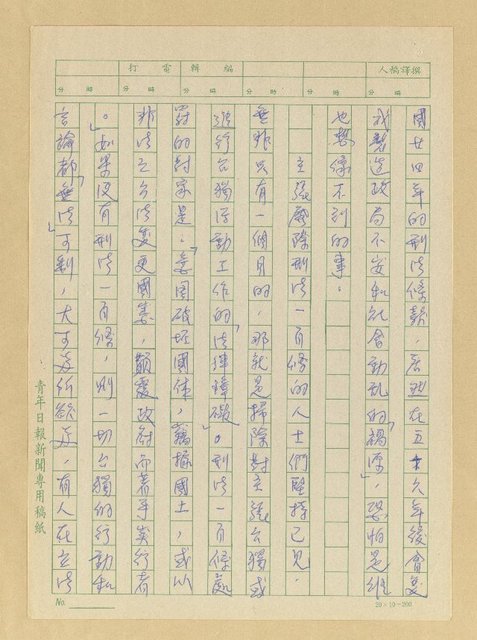 撰譯稿人
編輯
打電
時 分
時 分
時 分
時 分
國廿四年的刑法條款,居然在五十八年後會變
成製造政局不安和社會動亂的「禍源」,恐怕是誰
也想像不到的事。
主張廢除刑法一百條的人士們堅持己見,
無非只有一個目的,那就是掃除對主張台獨或
進行台獨活動工作的「法律障礙」。刑法一百條處
罰的對象是:「意圖破壞國体,竊據國土,或以
非法之方法變更國憲,顛覆政府而著手實行者
。」如果沒有刑法一百條,則一切台獨的行動和
言論都「無法可制」,大可為所欲為,有人在立法
青年日報新聞專用稿紙
No.
20×10=200